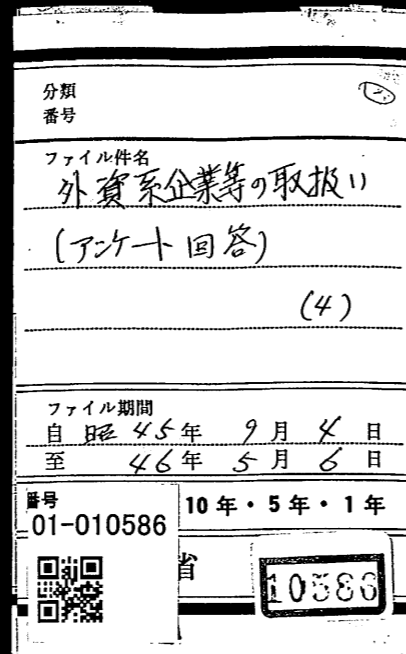 分類
番号
②
ファイル件名
外資系企業等の取扱い
(アンケート回答)
(4)
ファイル期間
自 昭 45年 9月 4日
至 46年 5月 6日
10年・5年・1年
番号
01-010586
省
10586